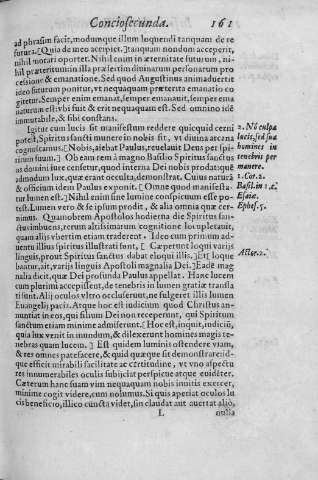 Concio secunda. 161
ad phrasim facit, modumque illum loquendi tanquam de re
futura. [Quia de meo accipiet.] tanquam nondum acceperit,
nihil morari oportet. Nihil enim in æternitate futurum, ni-
hil præteritum in illa præsertim divinarum personarum pro
cessione & emanatione. Sed quod Augustinus animaduertit
ideo futurum ponitur, vt nequaquam præterita emanatio co
gitetur. Semper enim emanat, semper emanauit, semper ema
naturus est: vbi fuit & erit nequaquam est. Sed omnino idē
immutabile, & sibi constans.
Igitur cum lucis sit manifestum reddere quicquid cerni
potest, Spiritus sancti munere in nobis fit, vt diuina arcana
cognoscamus. [Nobis, aiebat Paulus, reuelauit Deus per spi-
ritum suum.] Ob eam rem à magno Basilio Spiritus sanctus
as domini iure censetur, quod interna Dei nobis prodat: quē
admodum lux, quæ erant occulta, demonstrat. Cuius naturā
& officium idem Paulus exponit. [Omne quod manifesta-
tur lumen est.] Nihil enim sine lumine conspicuum esse po-
test. Lumen vero & se ipsum prodit, & alia omnia quæ cer-
nimus. Quamobrem Apostolos hodierna die Spiritus san-
ctus imbuens, rerum altissimarum cognitione locupletauit,
quam alijs vbertim etiam traderent. Ideo cum primum ad-
uentu illius spiritus illustrati sont, [Cæperunt loqui varijs
linguis, prout Spiritus sanctus dabat eloqui illis.] Et [loque
baātur, ait, varijs linguis Apostoli magnalia Dei.] Eadē mag
nalia dicit, quæ Dei profunda Paulus appellat. Hanc lucem
cum plurimi accepissent, de tenebris in lumen gratiæ transla
ti sunt. Alij oculos vltro occluserunt, ne fulgeret illis lumen
Euangelij pacis. Atque hoc est iudicium quod Christus an-
nuntiat in eos, qui filium Dei non receperunt, qui Spiritum
sanctum etiam minime admiserunt. [Hoc est, inquit, iudiciū,
quia lux venit in mundum, & dilexerunt homines magis te-
nebras quam lucem.] Est quidem luminis ostendere viam,
& res omnes patefacere, & quid quæque sit demonstrare: id-
que efficit mirabili facilitate ac certitudine, vt vno aspectu
res innumerabiles oculis subijciat perspicue atque euidēter.
Cæterum hanc suam vim nequaquam nobis inuitis exercet,
minime cogit videre, cum nolumus. Si quis aperiat oculos lu
cis beneficio, illico cuncta videt, sin claudat aut auertat aliò,
L nulla
lucis, sed suā
homines in
tenebris per
manere.
1. Cor. 2.
Esaiæ.
Ephes. 5.
Actor. 2.